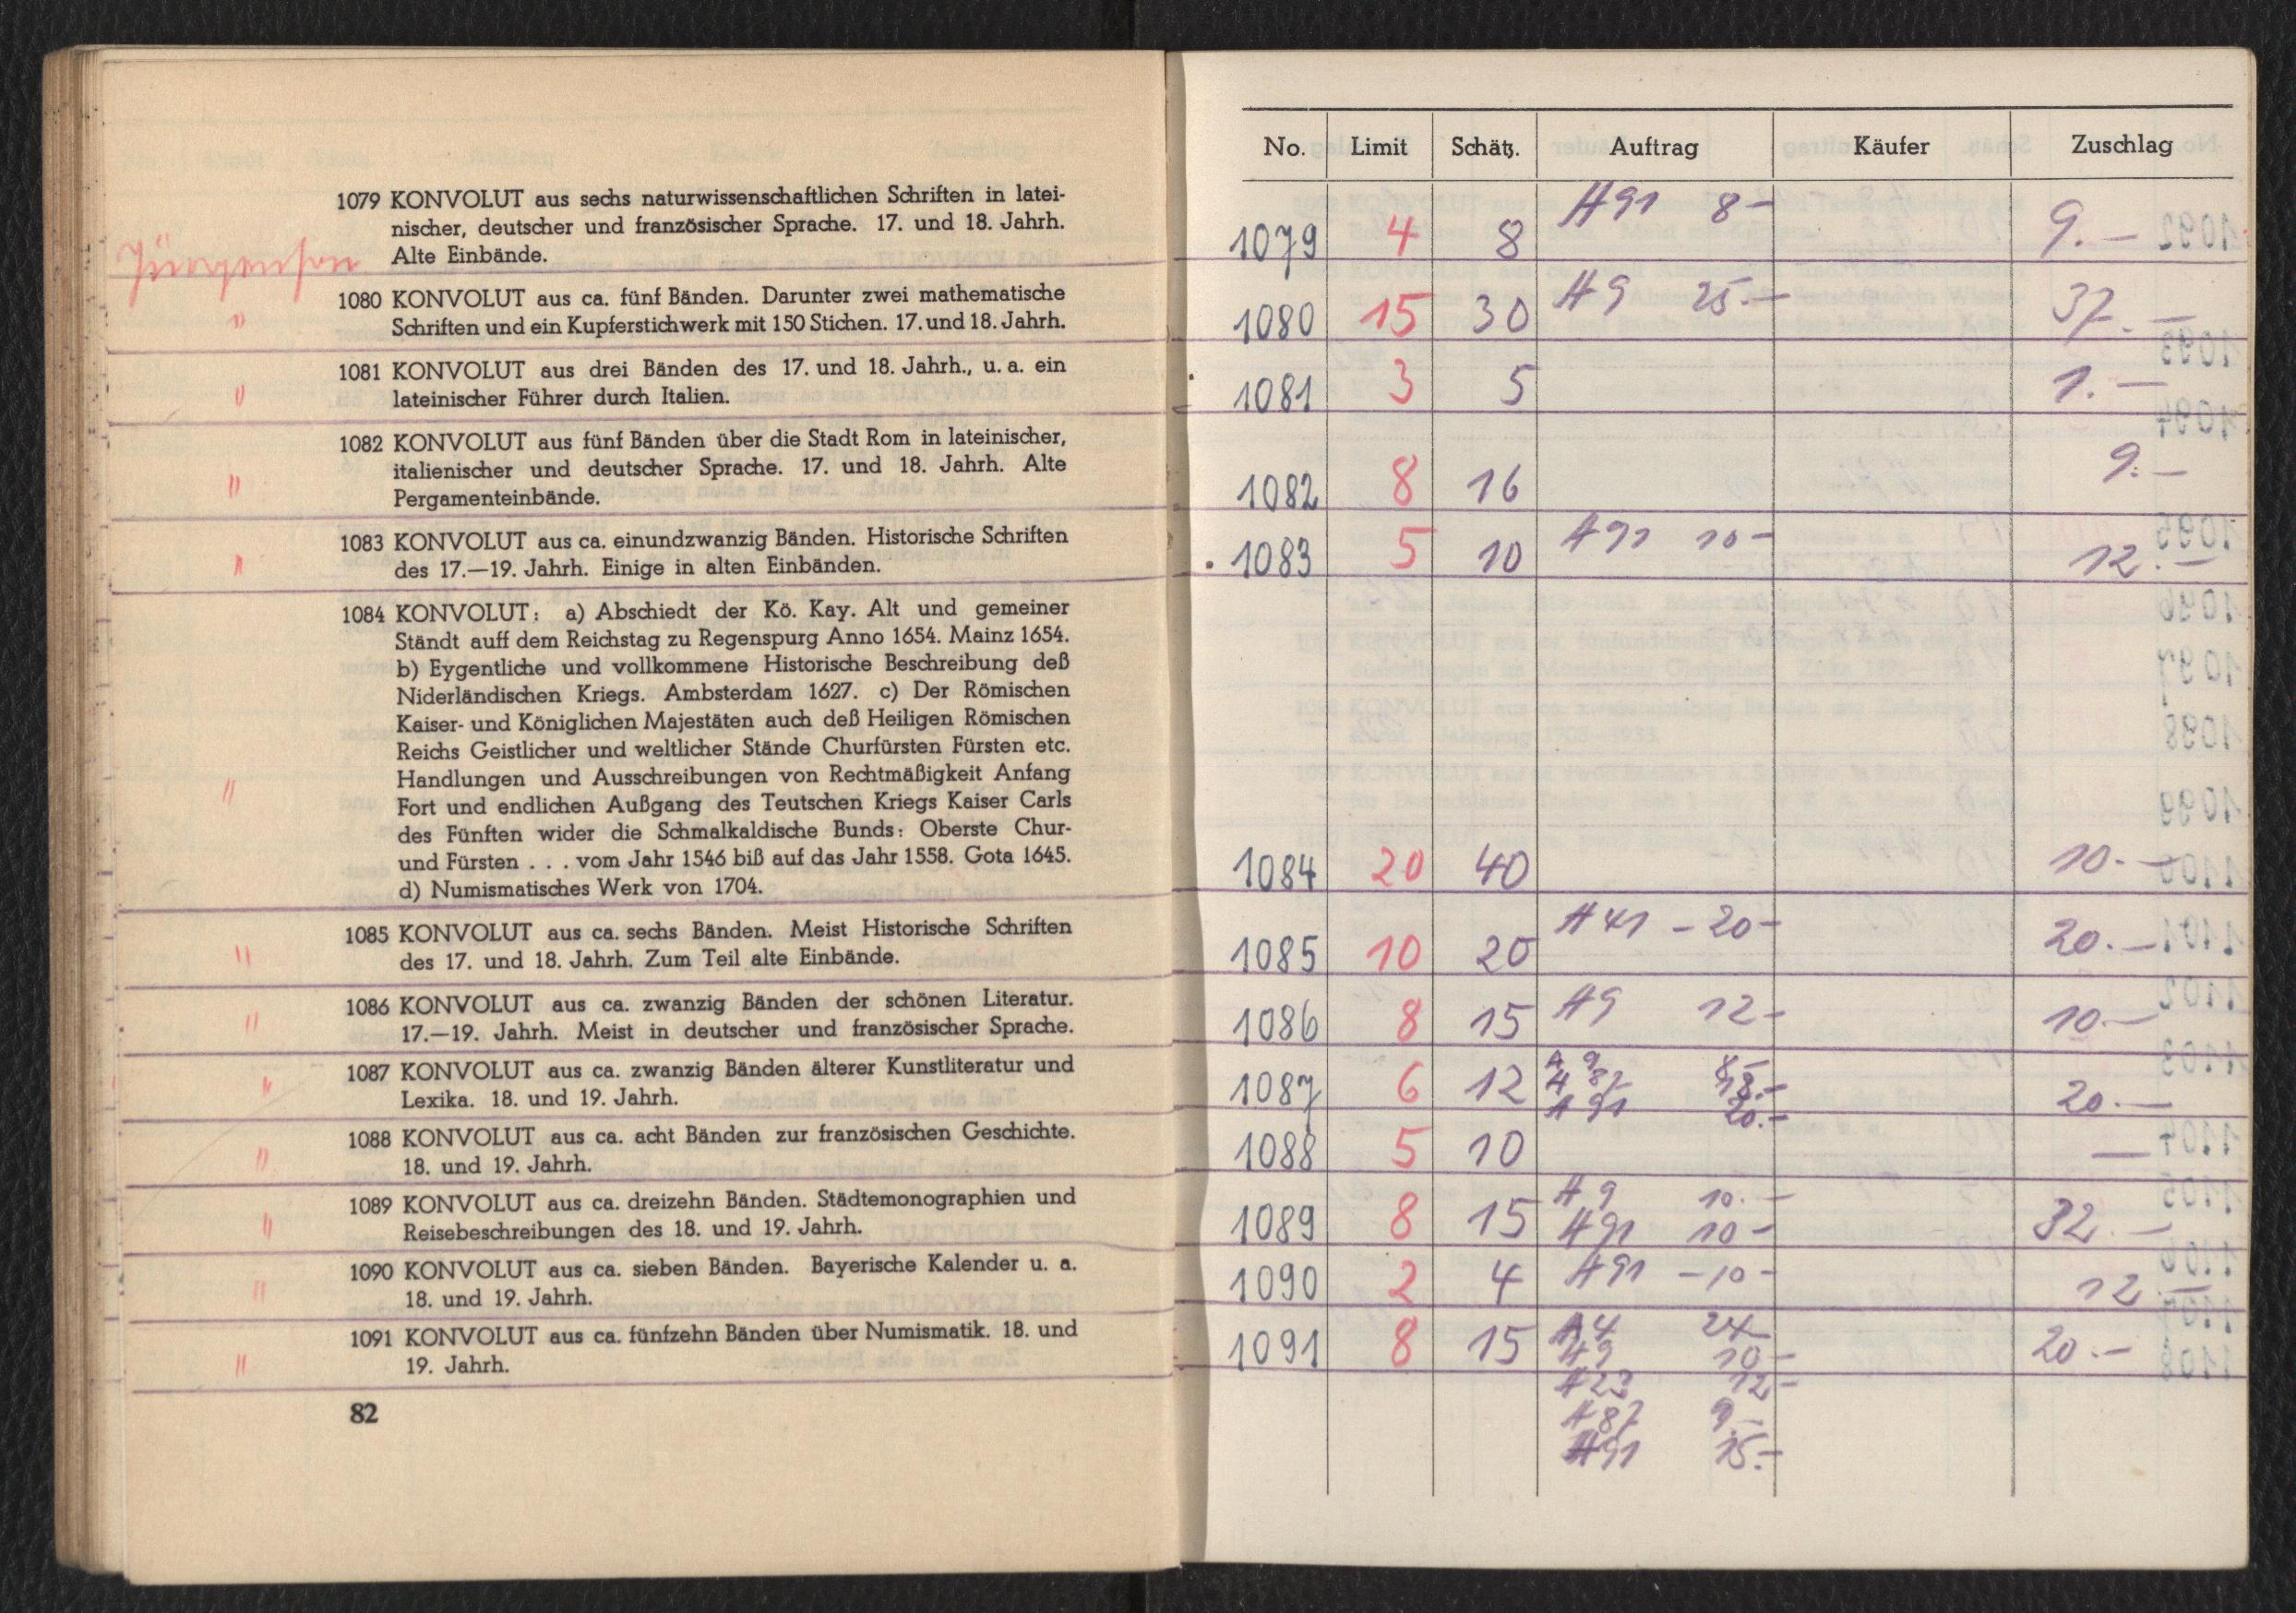 1079 KONVOLUT aus sechs naturwissenschaftlichen Schriften in latei-
nischer, deutscher und französischer Sprache. 17. und 18. Jahrh.
Alte Einbände.
1080 KONVOLUT aus ca. fünf Bänden. Darunter zwei mathematische
"
Schriften und ein Kupferstichwerk mit 150 Stichen. 17. und 18. Jahrh.
1081 KONVOLUT aus drei Bänden des 17. und 18. Jahrh., u. a. ein
" lateinischer Führer durch Italien.
1082 KONVOLUT aus fünf Bänden über die Stadt Rom in lateinischer,
italienischer und deutscher Sprache. 17. und 18. Jahrh. Alte
" Pergamenteinbände.
1083 KONVOLUT aus ca. einundzwanzig Bänden. Historische Schriften
" des 17.—19. Jahrh. Einige in alten Einbänden.
1084 KONVOLUT: a) Abschiedt der Kö. Kay. Alt und gemeiner
Ständt auff dem Reichstag zu Regenspurg Anno 1654. Mainz 1654.
b) Eygentliche und vollkommene Historische Beschreibung deß
Niderländischen Kriegs. Ambsterdam 1627. c) Der Römischen
Kaiser- und Königlichen Majestäten auch deß Heiligen Römischen
Reichs Geistlicher und weltlicher Stände Churfürsten Fürsten etc.
Handlungen und Ausschreibungen von Rechtmäßigkeit Anfang
" Fort und endlichen Außgang des Teutschen Kriegs Kaiser Carls
des Fünften wider die Schmalkaldische Bunds: Oberste Chur-
und Fürsten . . . vom Jahr 1546 biß auf das Jahr 1558. Gota 1645.
d) Numismatisches Werk von 1704.
1085 KONVOLUT aus ca. sechs Bänden. Meist Historische Schriften
" des 17. und 18. Jahrh. Zum Teil alte Einbände.
1086 KONVOLUT aus ca. zwanzig Bänden der schönen Literatur.
" 17.—19. Jahrh. Meist in deutscher und französischer Sprache.
1087 KONVOLUT aus ca. zwanzig Bänden älterer Kunstliteratur und
" Lexika. 18. und 19. Jahrh.
1088 KONVOLUT aus ca. acht Bänden zur französischen Geschichte.
" 18. und 19. Jahrh.
1089 KONVOLUT aus ca. dreizehn Bänden. Städtemonographien und
" Reisebeschreibungen des 18. und 19. Jahrh.
1090 KONVOLUT aus ca. sieben Bänden. Bayerische Kalender u. a.
" 18. und 19. Jahrh.
1091 KONVOLUT aus ca. fünfzehn Bänden über Numismatik. 18. und
" 19. Jahrh.
82
No. Limit Schätz. Auftrag Käufer Zuschlag
1079 4 8 A 91 8- 9.-
1080 15 30 A 9 25.- 37.-
1081 3 5 1.-
1082 8 16 9.-
1083 5 10 A 91 10- 12.-
1084 20 40 10.-
1085 10 20 A 41 -20- 20.-
1086 8 15 A 9 12- 10.-
1087 6 12 A 9 8.- 20.-
A 87 18.-
A 91 20.-
1088 5 10 —
1089 8 15 A 9 10.- 32.-
A 91 10-
1090 2 4 A 91 -10- 12.-
1091 8 15 A 4 24 20.-
A 9 10-
A 23 12-
A 87 9.-
A 91 15.-